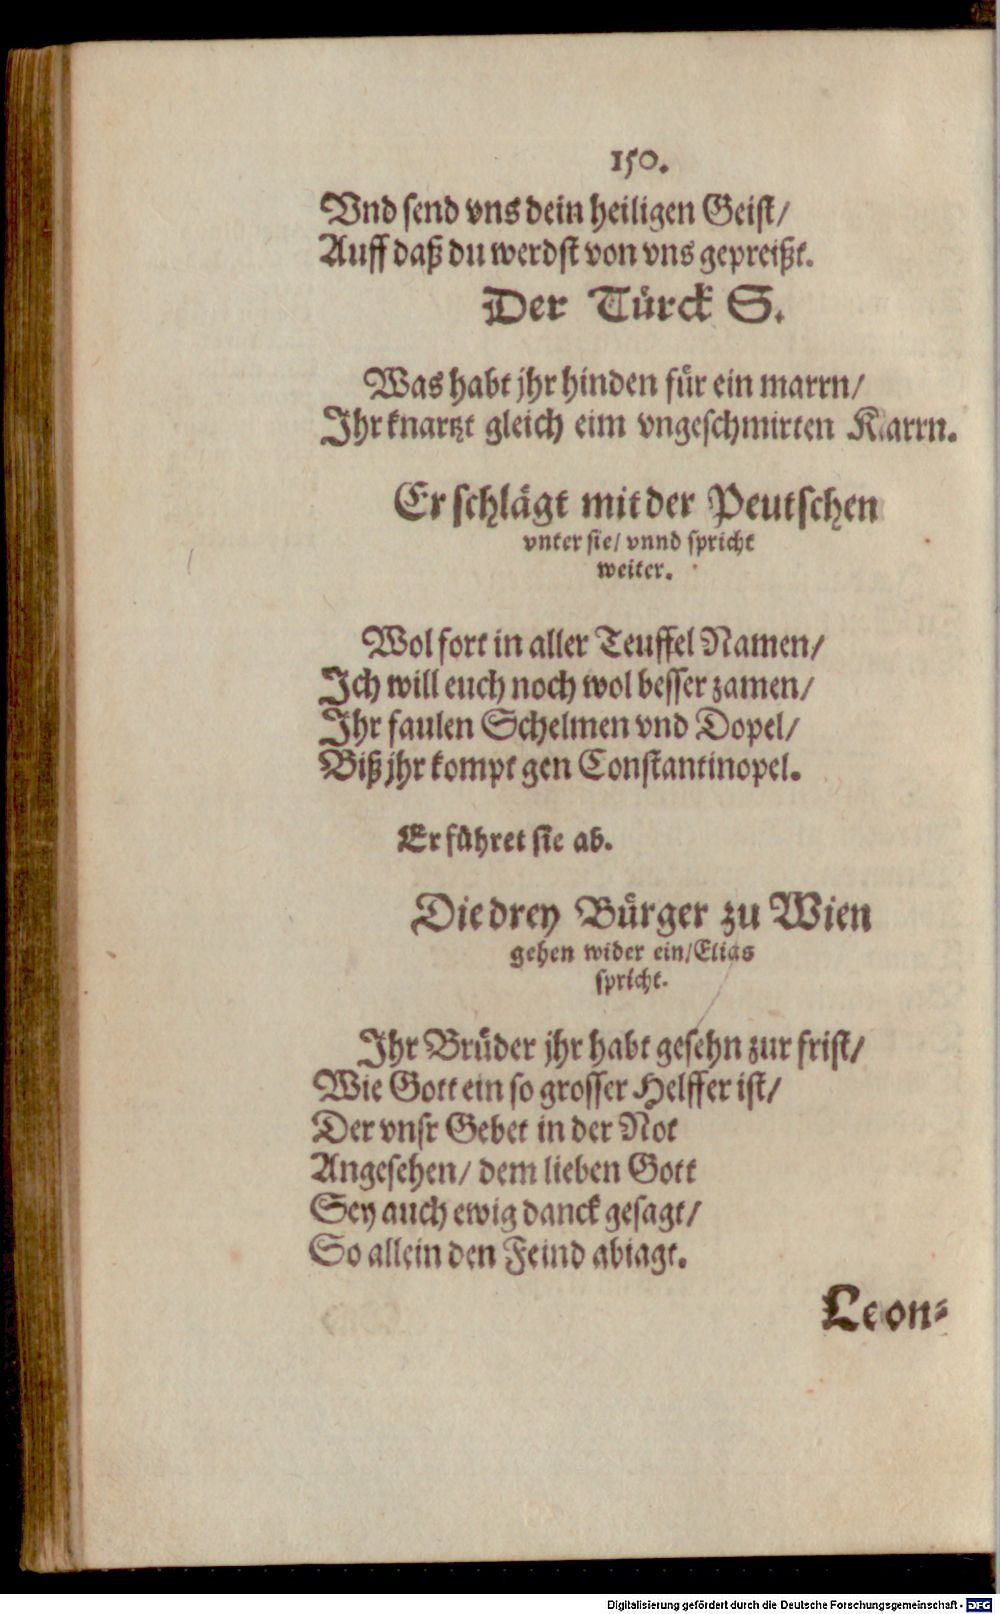 150.
Vnd send vns dein heiligen Geist/
Auff daß du werdst von vns gepreißt.
Der Türck S.
Was habt jhr hinden für ein marrn/
Ihr knartzt gleich eim vngeschmirten Karrn.
Er schlägt mit der Peutschen
vnter sie/ vnnd spricht
weiter.
Wol fort in aller Teuffel Namen/
Ich will euch noch wol besser zamen/
Ihr faulen Schelmen vnd Dopel/
Biß jhr kompt gen Constantinopel.
Er führet sie ab.
Die drey Bürger zu Wien
gehen wider ein/ Elias
spricht.
Ihr Brüder jhr habt gesehn zur frist/
Wie Gott ein so grosser Helffer ist/
Der vnsr Gebet in der Not
Angesehen/ dem lieben Gott
Sey auch ewig danck gesagt/
So allein den Feind abiagt.
Leon-
Digitalisierung gefördert durch die Deutsche Forschungsgemeinschaft - DFG